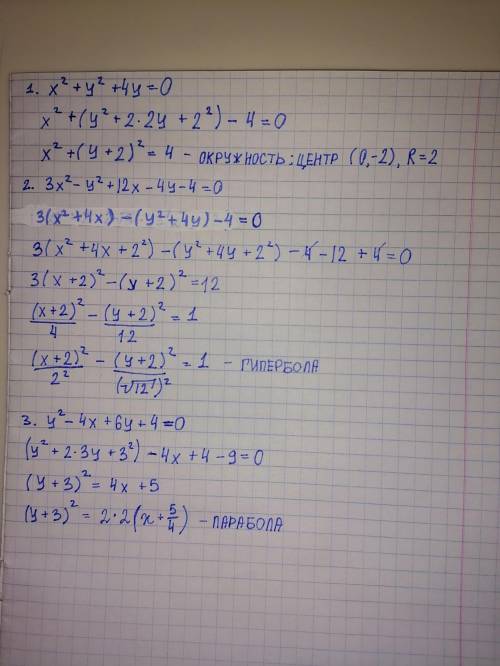 1. x² + y² + 4y = 0
x² + (y² + 2·2y + 2²) - 4 = 0
x² + (y + 2)² = 4 - ОКРУЖНОСТЬ: ЦЕНТР (0, -2), R = 2
2. 3x² - y² + 12x - 4y - 4 = 0
3(x² + 4x) - (y² + 4y) - 4 = 0
3(x² + 4x + 2²) - (y² + 4y + 2²) - 4 - 12 + 4 = 0
3(x + 2)² - (y + 2)² = 12
(x+2)²/4 - (y+2)²/12 = 1
(x+2)²/2² - (y+2)²/(√12)² = 1 - ГИПЕРБОЛА
3. y² - 4x + 6y + 4 = 0
(y² + 2·3y + 3²) - 4x + 4 - 9 = 0
(y + 3)² = 4x + 5
(y + 3)² = 2·2(x + 5/4) - ПАРАБОЛА